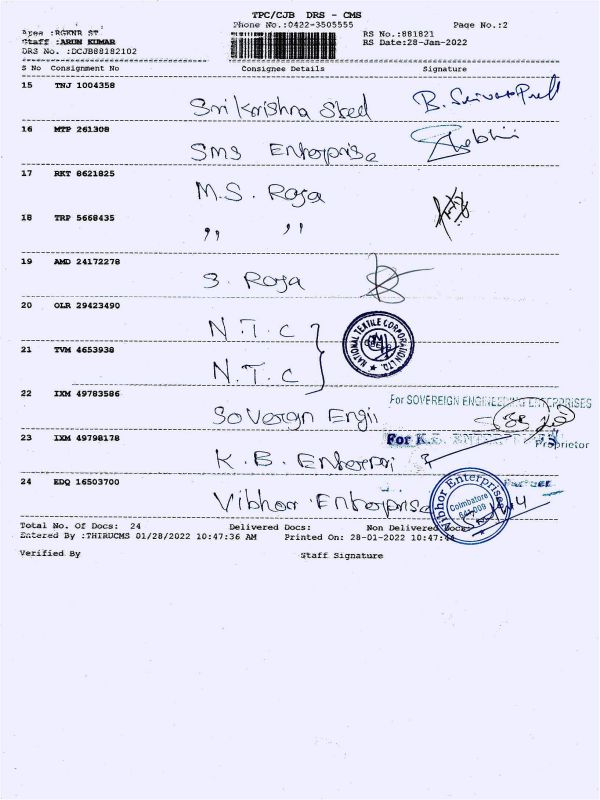 TPC/CJB DRS - CMS
Phone No.:0422-3505555 Page No.:2
Area :RGKNR ST RS No.:881821
Staff :ARUN KUMAR RS Date:28-Jan-2022
DRS No. :DCJB88182102
S No Consignment No Consignee Details Signature
15 TNJ 1004358
Srikrishna Steel
16 MTP 261308
SMS Enterprise
17 RKT 8621825
M.S. Raja
18 TRP 5668435
,, ,,
19 AMD 24172278
S. Raja
20 OLR 29423490
N.T.C
NATIONAL TEXTILE CORPORATION LTD.
21 TVM 4653938
N.T.C
22 IXM 49783586
For SOVEREIGN ENGINEERING ENTERPRISES
Sovereign Engii
23 IXM 49798178
For K.B. ENTERPRISES
Proprietor
K.B. Enterpri
24 EDQ 16503700
Partner
Vibhor Enterprise
Vibhor Enterprises
Coimbatore
641 009
Total No. Of Docs: 24 Delivered Docs: Non Delivered Docs:
Entered By :THIRUCMS 01/28/2022 10:47:36 AM Printed On: 28-01-2022 10:47:44
Verified By Staff Signature